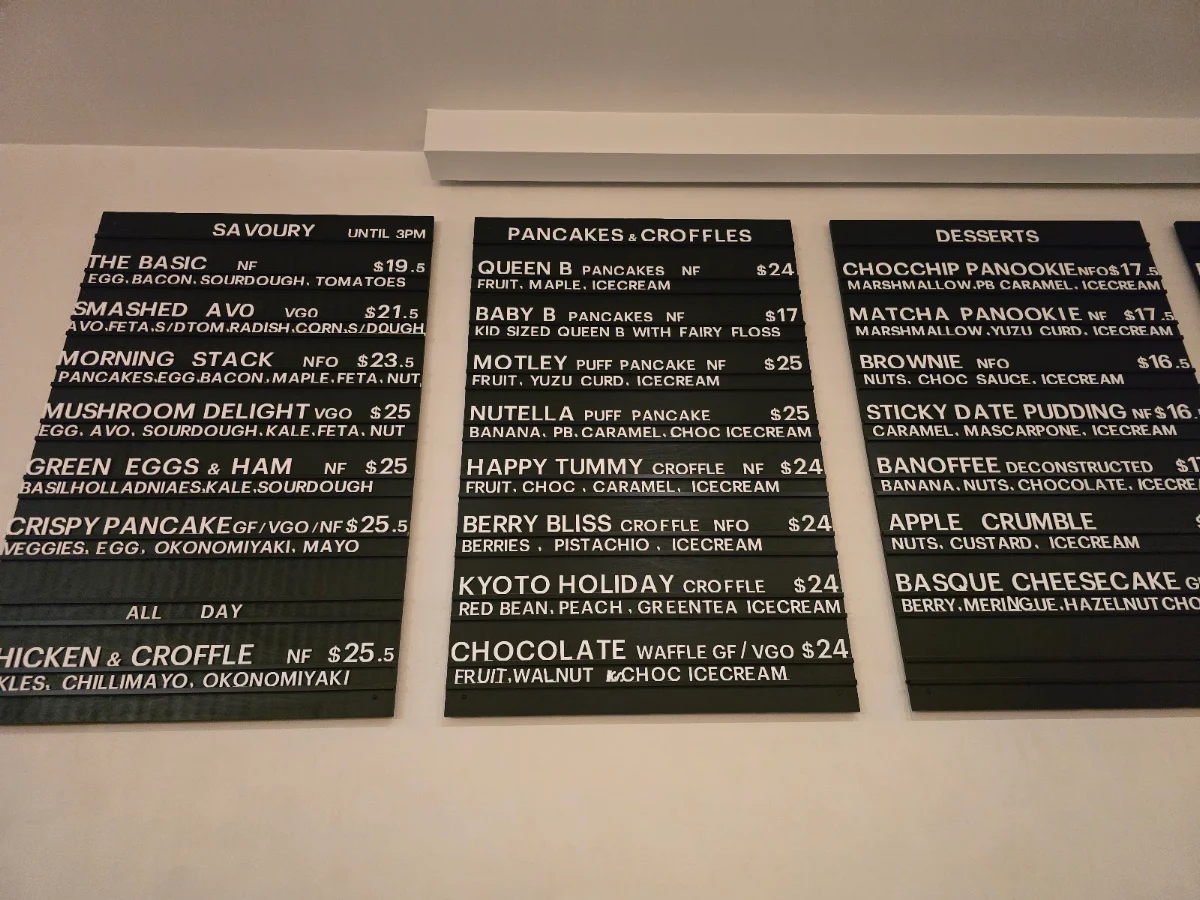 SAVOURY UNTIL 3PM
THE BASIC NF $19.5
EGG, BACON, SOURDOUGH, TOMATOES
SMASHED AVO VGO $21.5
AVO,FETA,S/DTOM,RADISH,CORN,S/DOUGH
MORNING STACK NFO $23.5
PANCAKES,EGG,BACON,MAPLE,FETA,NUT
MUSHROOM DELIGHT VGO $25
EGG, AVO, SOURDOUGH,KALE,FETA, NUT
GREEN EGGS & HAM NF $25
BASILHOLLADNIAES,KALE,SOURDOUGH
CRISPY PANCAKE GF/VGO/NF $25.5
VEGGIES, EGG, OKONOMIYAKI, MAYO
ALL DAY
HICKEN & CROFFLE NF $25.5
KLES, CHILLIMAYO, OKONOMIYAKI
PANCAKES & CROFFLES
QUEEN B PANCAKES NF $24
FRUIT, MAPLE, ICECREAM
BABY B PANCAKES NF $17
KID SIZED QUEEN B WITH FAIRY FLOSS
MOTLEY PUFF PANCAKE NF $25
FRUIT, YUZU CURD, ICECREAM
NUTELLA PUFF PANCAKE $25
BANANA, PB,CARAMEL,CHOC ICECREAM
HAPPY TUMMY CROFFLE NF $24
FRUIT, CHOC , CARAMEL, ICECREAM
BERRY BLISS CROFFLE NFO $24
BERRIES , PISTACHIO , ICECREAM
KYOTO HOLIDAY CROFFLE $24
RED BEAN, PEACH , GREENTEA ICECREAM
CHOCOLATE WAFFLE GF/VGO $24
FRUIT,WALNUT CHOC ICECREAM
DESSERTS
CHOCCHIP PANOOKIE NFO $17.5
MARSHMALLOW,PB CARAMEL, ICECREAM
MATCHA PANOOKIE NF $17.5
MARSHMALLOW,YUZU CURD, ICECREAM
BROWNIE NFO $16.5
NUTS, CHOC SAUCE, ICECREAM
STICKY DATE PUDDING NF $16.
CARAMEL, MASCARPONE, ICECREAM
BANOFFEE DECONSTRUCTED $1
BANANA, NUTS, CHOCOLATE, ICECRE
APPLE CRUMBLE
NUTS, CUSTARD, ICECREAM
BASQUE CHEESECAKE G
BERRY,MERINGUE,HAZELNUT CHO